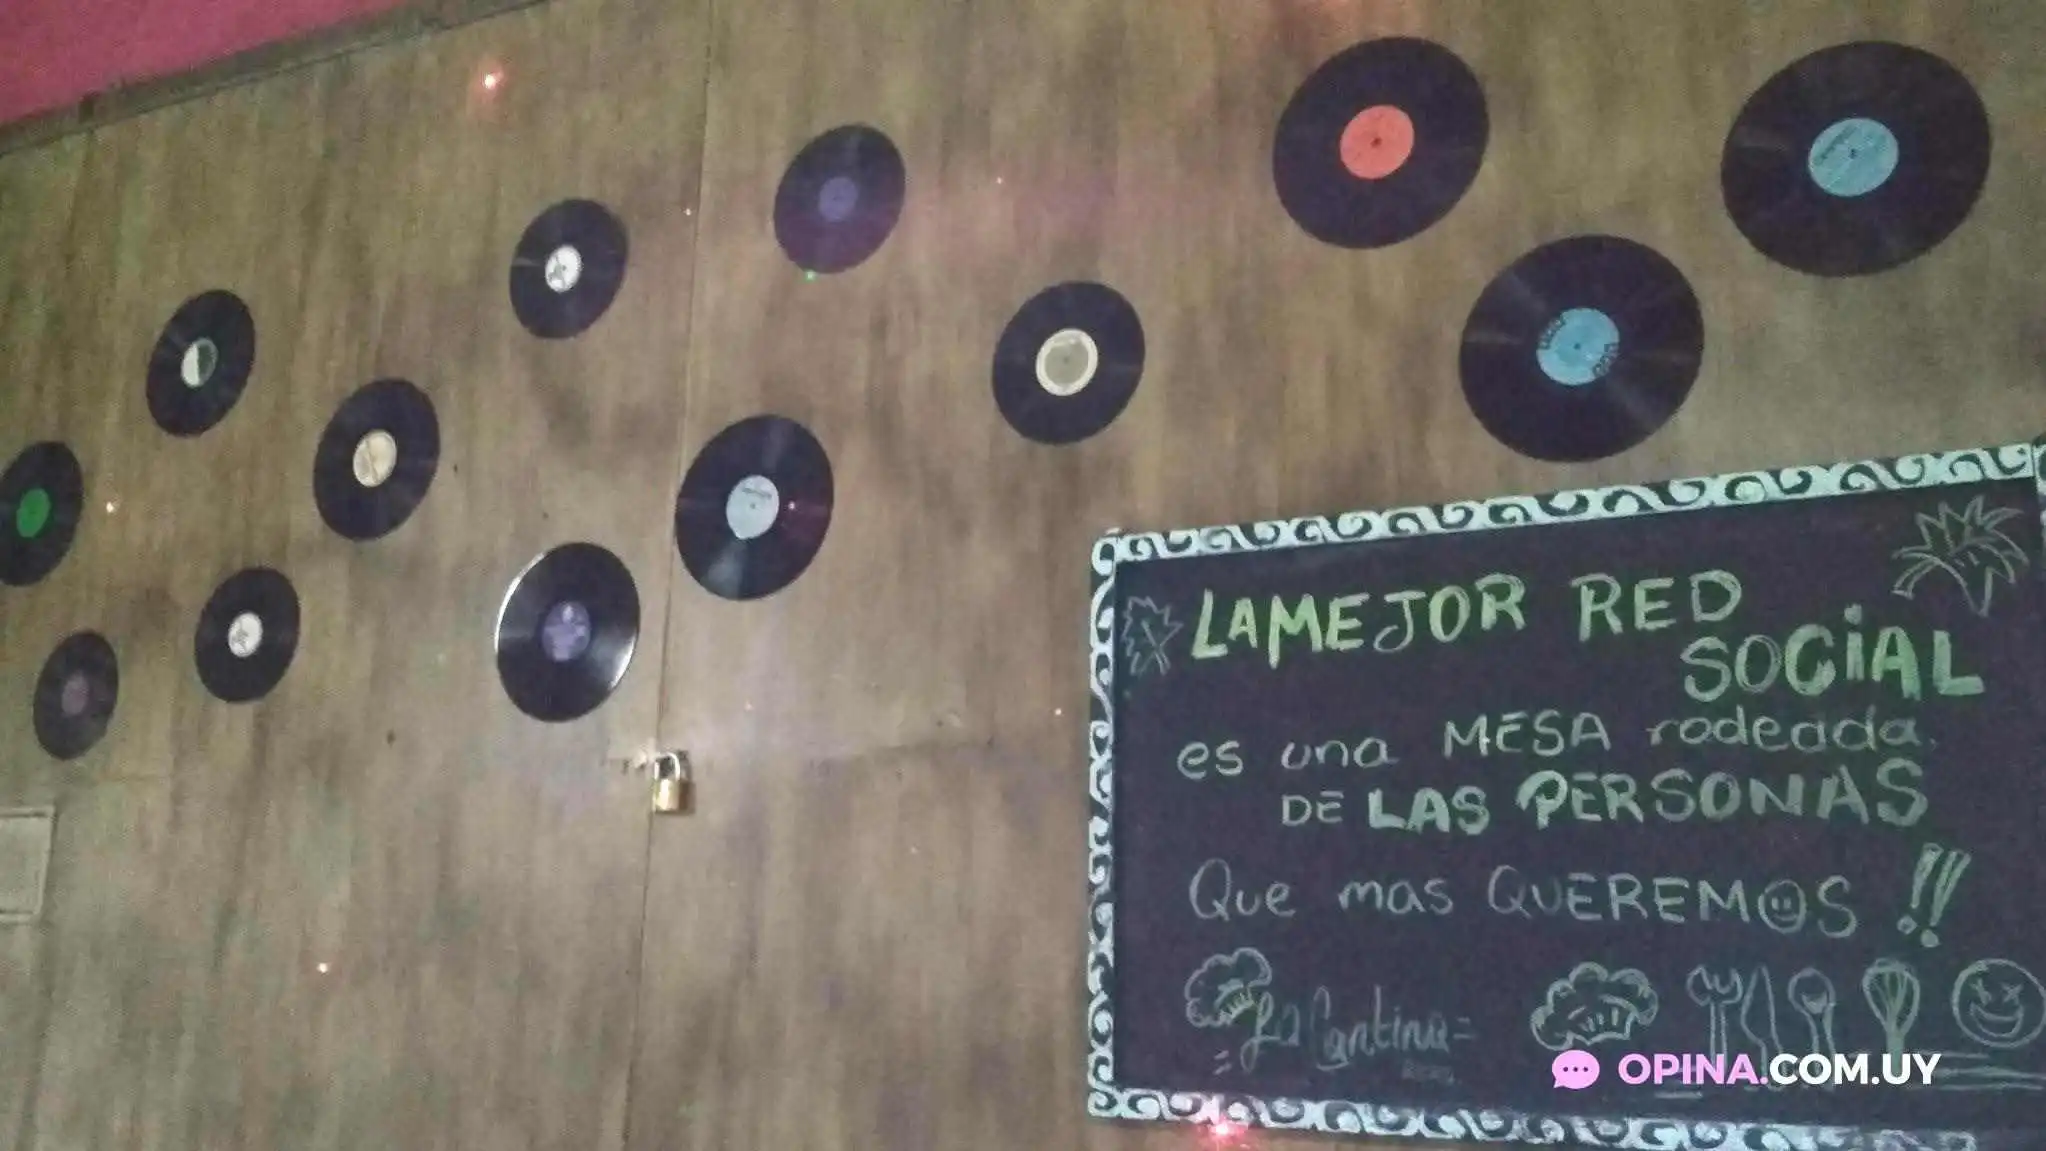 LA MEJOR RED
SOCIAL
es una MESA rodeada.
DE LAS PERSONAS
Que mas QUEREMOS !!
La Cantina
OPINA.COM.UY